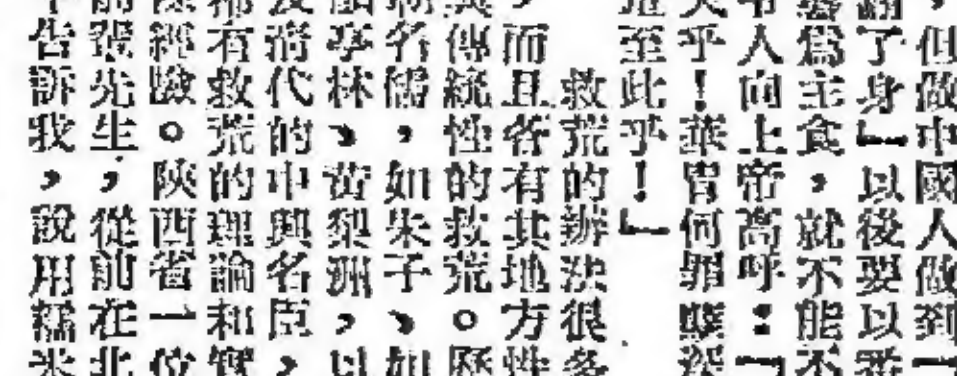 ，但做中國人做到「
翻了身」以後要以番
薯爲主食，就不能不
帝人向上帝高呼：「
天乎！華胄何罪？深
遭至此乎！」
救荒的辦法很多
，而且各有其地方性
與傳統性的救荒。歷
朝名儒，如朱子、如
顧亭林、黃梨洲，以
及清代的中興名臣，
都有救荒的理論和實
際經驗。陝西省一位
前張先生，從前在北
平告訴我，說用糯米